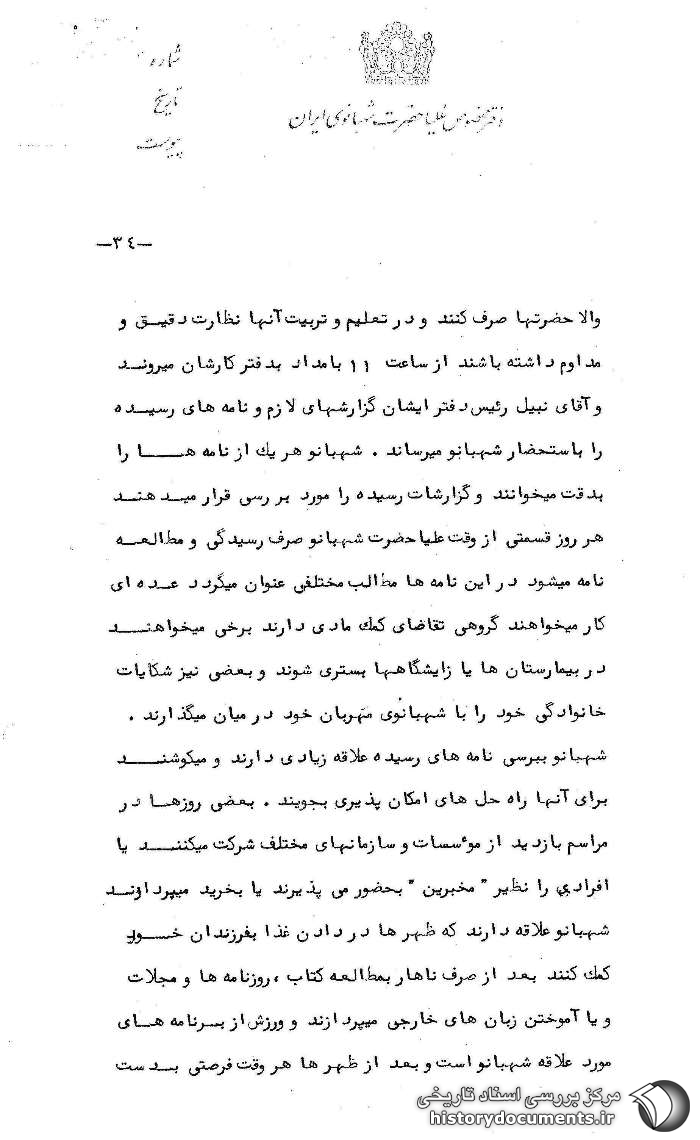 شماره
تاریخ
پیوست
دفتر مخصوص علیاحضرت شهبانوی ایران
-۳٤-
والا حضرتها صرف کنند و در تعلیم و تربیت آنها نظارت دقیق و
مداوم داشته باشند از ساعت ۱۱ بامداد بدفتر کارشان میروند
و آقای نبیل رئیس دفتر ایشان گزارشهای لازم و نامه های رسیده
را باستحضار شهبانو میرساند . شهبانو هر یك از نامه هـا را
بدقت میخوانند و گزارشات رسیده را مورد بررسی قرار میدهند
هر روز قسمتی از وقت علیاحضرت شهبانو صرف رسیدگی و مطالعه
نامه میشود در این نامه ها مطالب مختلفی عنوان میگردد عده ای
کار میخواهند گروهی تقاضای کمك مادی دارند برخی میخواهند
در بیمارستان ها یا زایشگاهها بستری شوند و بعضی نیز شکایات
خانوادگی خود را با شهبانوی مهربان خود در میان میگذارند .
شهبانو ببرسی نامه های رسیده علاقه زیادی دارند و میکوشند
برای آنها راه حل های امکان پذیری بجویند . بعضی روزها در
مراسم بازدید از مؤسسات و سازمانهای مختلف شرکت میکنند یا
افرادی را نظیر " مخبرین " بحضور می پذیرند یا بخرید میپردازند
شهبانو علاقه دارند که ظهر ها در دادن غذا بفرزندان خود
کمك کنند بعد از صرف ناهار بمطالعه کتاب ، روزنامه ها و مجلات
و یا آموختن زبان های خارجی میپردازند و ورزش از بسرنامه های
مورد علاقه شهبانو است و بعد از ظهر ها هر وقت فرصتی بدست
مرکز بررسی اسناد تاریخی
historydocuments.ir